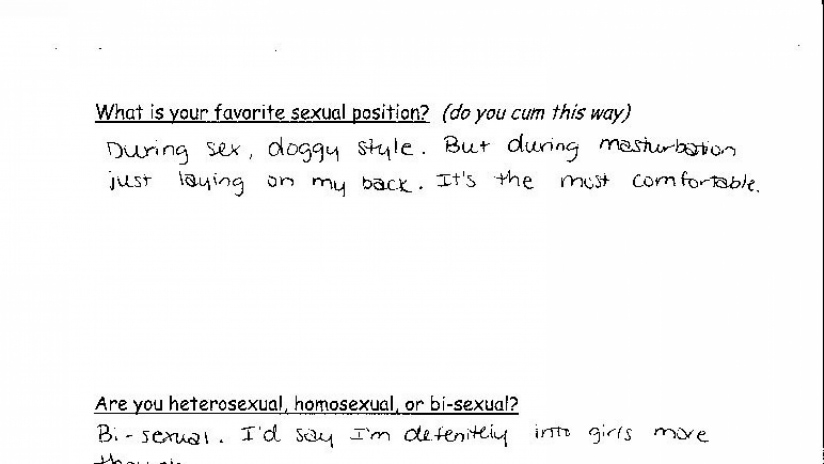 What is your favorite sexual position? (do you cum this way)
During sex, doggy style. But during masturbation
just laying on my back. It's the most comfortable.
Are you heterosexual, homosexual, or bi-sexual?
Bi-sexual. I'd say I'm defenitely into girls more
though